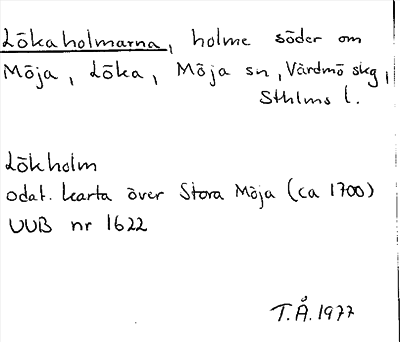 Lökaholmarna, holme söder om
Möja, Löka, Möja sn, Värdmö skg,
Sthlms l.
Lökholm
odat. karta över Stora Möja (ca 1700)
UUB nr 1622
T.Å. 1977